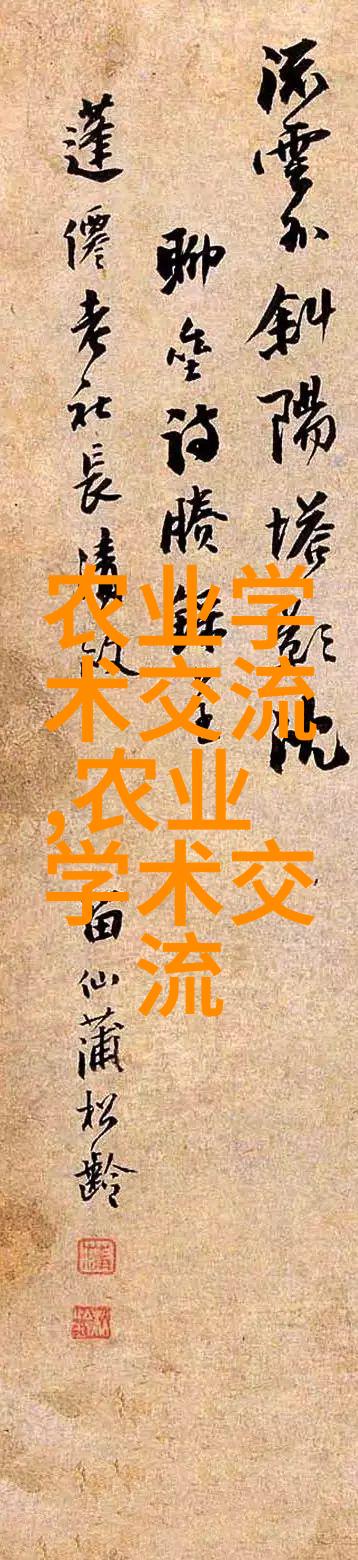 雲外斜陽塔影
聊詩
蓬僊老社長清政
留仙蒲松齡
农业学
术交流
,农业
学术交
流